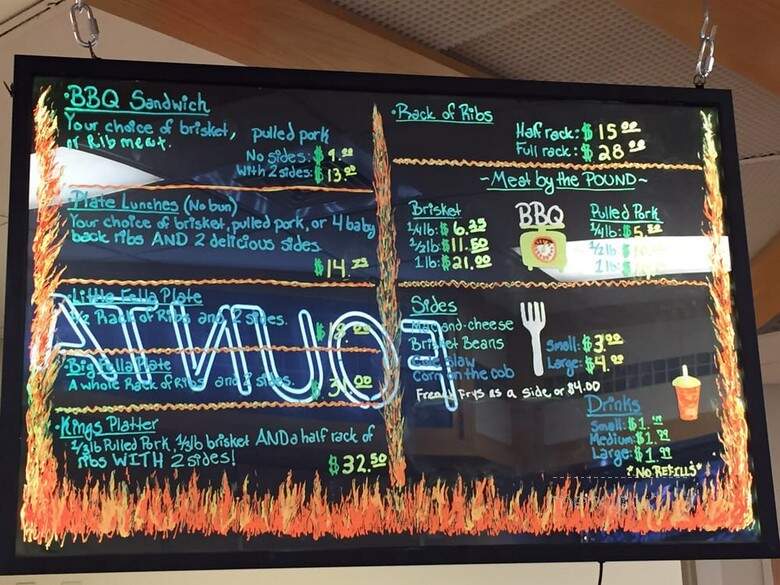 •BBQ Sandwich
Your choice of brisket, pulled pork
or Rib meat.
No sides: $9.00
With 2 sides: $13.00
Plate Lunches (No bun)
Your choice of brisket, pulled pork, or 4 baby
back ribs AND 2 delicious sides
$14.75
•Little Fella Plate
½ Rack of Ribs and 2 sides.
•Big Fella Plate
A whole Rack of Ribs and 2 sides.
•Kings Platter
1/3lb Pulled Pork, 1/3lb brisket AND a half rack of
ribs WITH 2 sides!
$32.50
•Rack of Ribs
Half rack: $15.00
Full rack: $28.00
~Meat by the POUND~
Brisket
1/4lb: $6.25
1/2lb: $11.50
1 lb: $21.00
BBQ
Pulled Pork
1/4lb: $5.50
1/2lb: $
1 lb: $
Sides
Mac and cheese
Brisket Beans
Cole Slaw
Corn on the cob
Small: $3.00
Large: $4.00
French Frys as a side, or $4.00
Drinks
Small: $1.
Medium: $1.
Large: $1.
*NO REFILLS*
FOUNTA